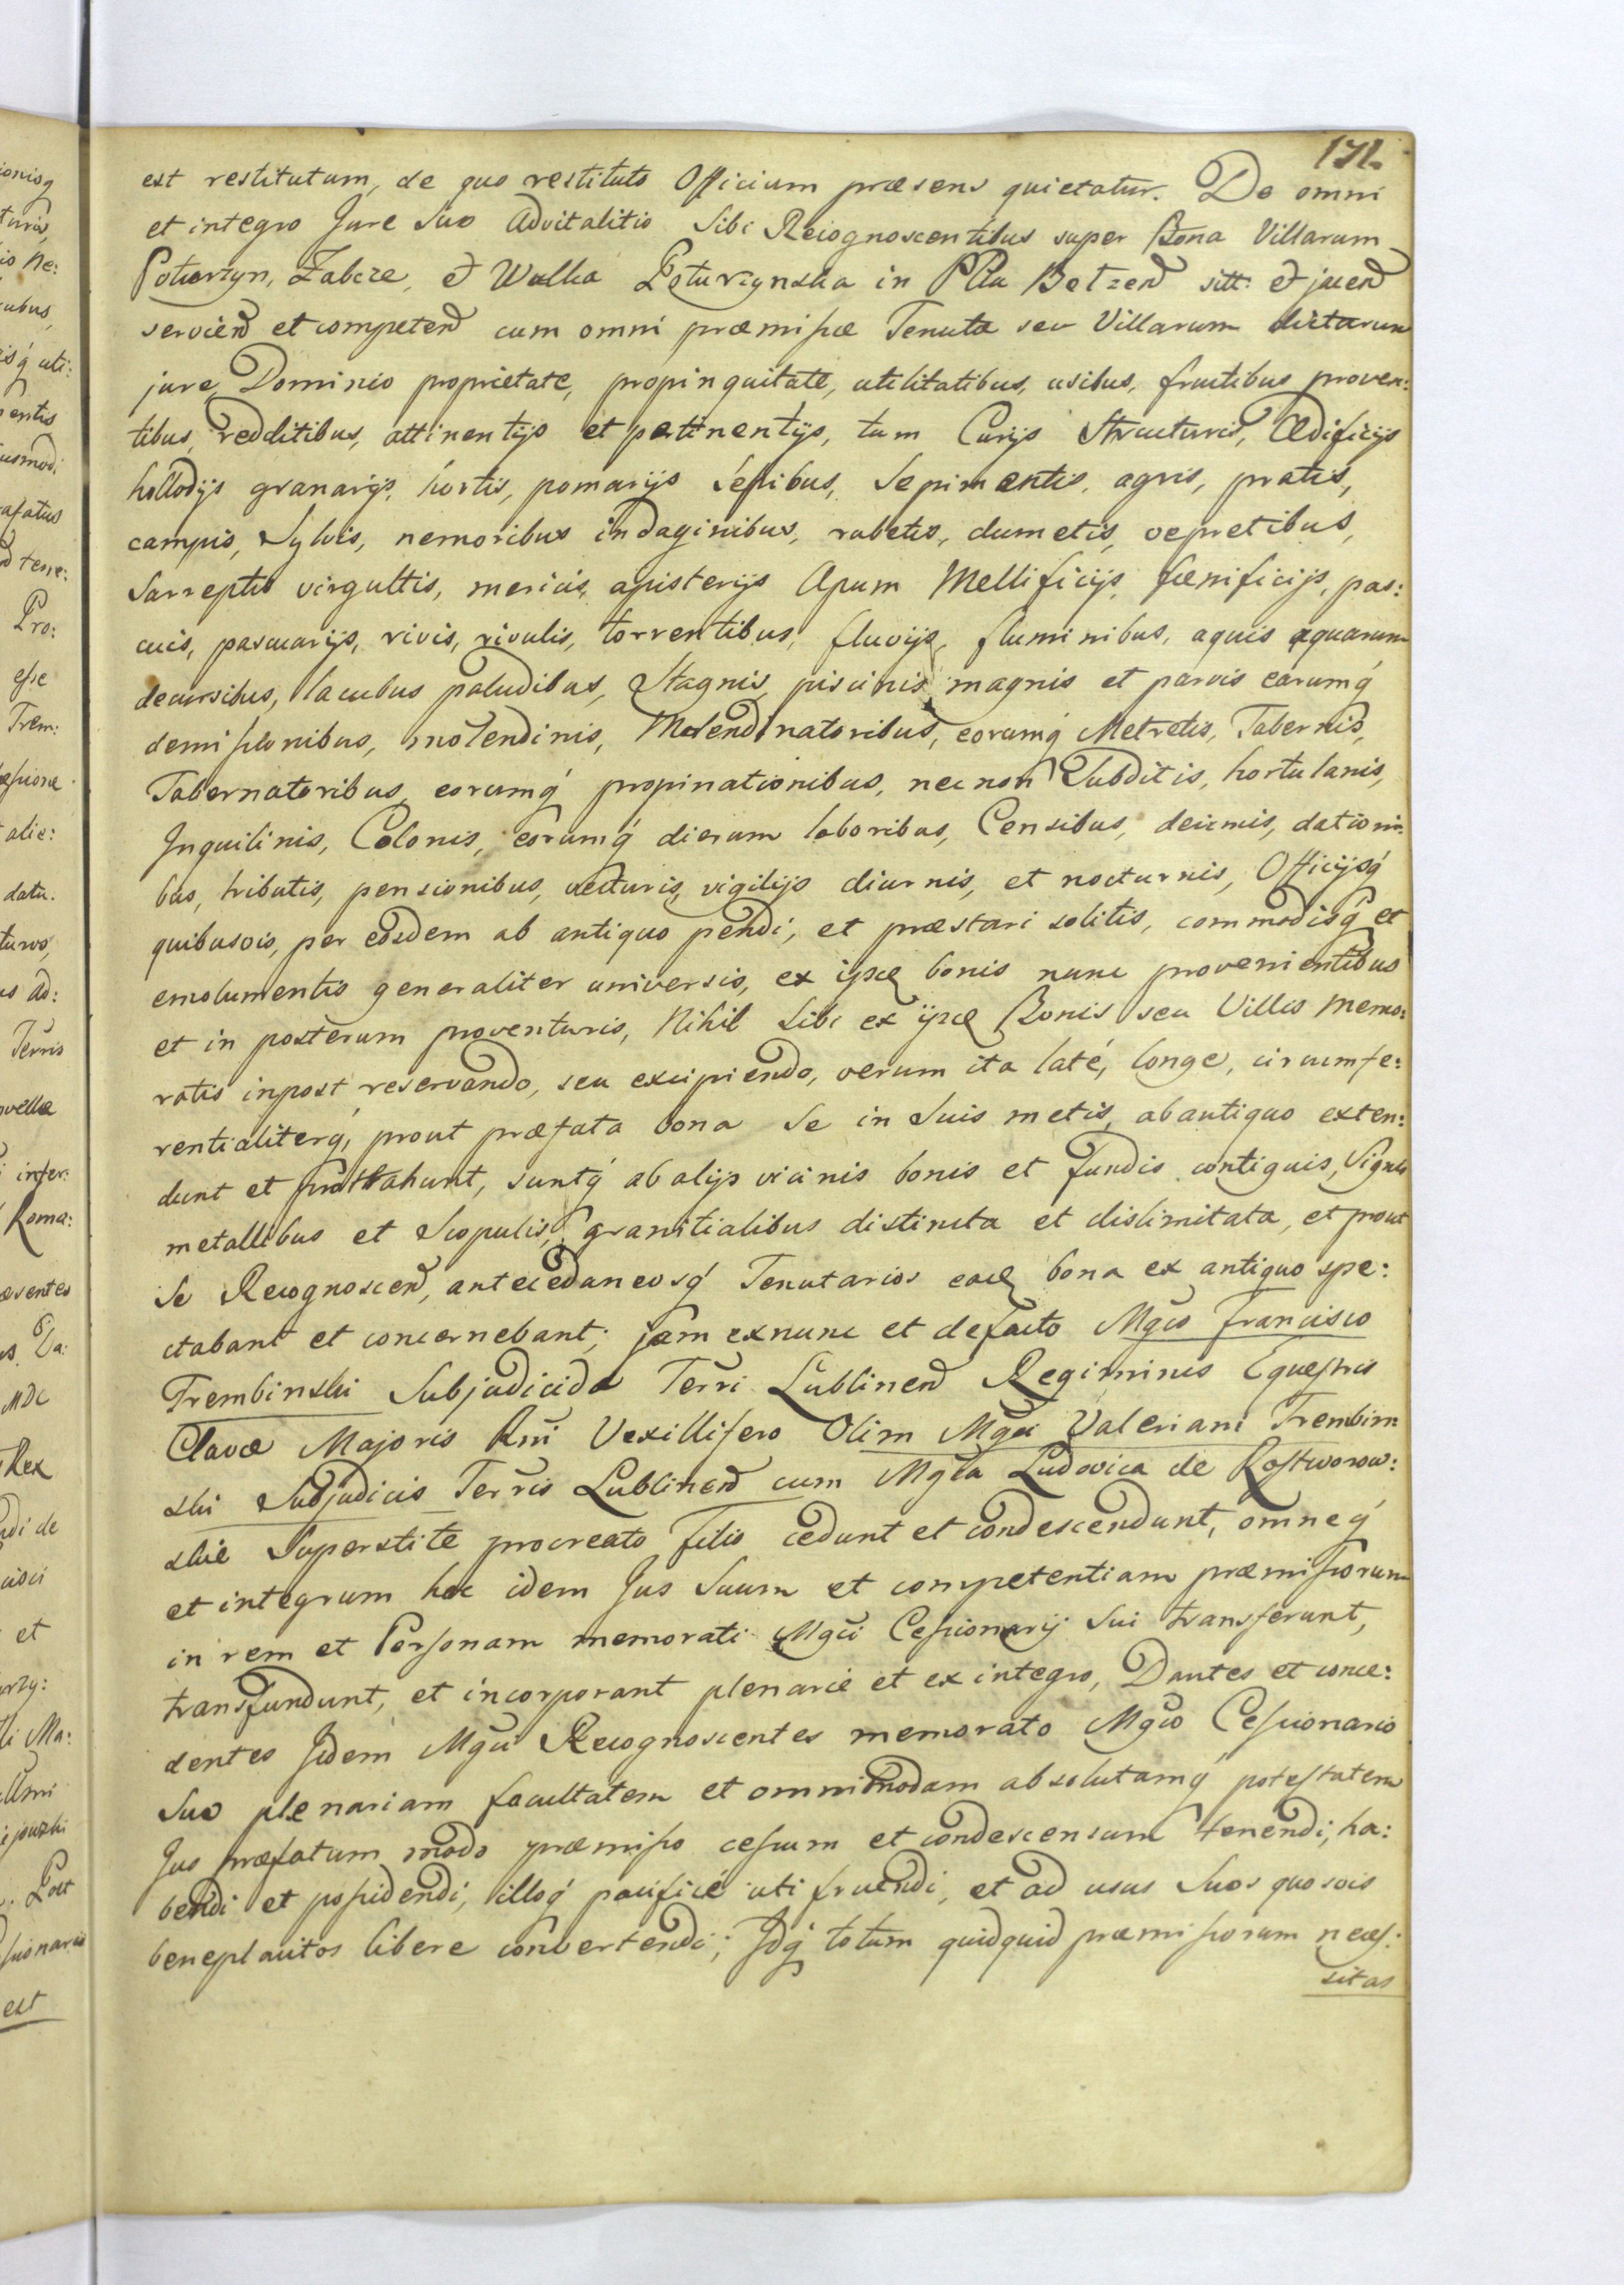 171.
est restitutum, de quo restituto Officium præsens quietatur. De omni
et integro Jure Suo Advitalitio Sibi Recognoscentibus super Bona Villarum
Poturzyn, Zabcze, et Wulka Poturzynska in Pltu Betzen sitt. et jacen
servien et competen cum omni præmissæ Tenutæ seu Villarum dictarum
jure Dominio proprietate, propinquitate, utilitatibus, usibus, fructibus proven:
tibus, redditibus, attinentijs et pertinentijs, tum Curijs Structuris, Ædificijs
hollodijs granarijs, hortis, pomarijs sepibus, Sepimentis, agris, pratis,
campis, Sylvis, nemoribus indaginibus, rubetis, dumetis, vepretibus,
Sarreptis virgultis, mericis, apisterijs Apum Mellificijs, fænificijs, pas:
cuis, pascuarijs, rivis, rivulis, torrentibus, fluvijs, fluminibus, aquis aquarum
decursibus, lacubus paludibus, Stagnis, piscinis magnis et parvis earumq́
demissionibus, molendinis, Molendinatoribus, eorumq́ Metretis, Tabernis,
Tabernatoribus, eorumq́ propinationibus, nec non Subditis, hortulanis,
Inquilinis, Colonis, eorumq́ dierum laboribus, Censibus, decimis, dationi:
bus, tributis, pensionibus, vecturis, vigilijs diurnis, et nocturnis, Officijsq́
quibusvis, per eosdem ab antiquo pendi, et præstari solitis, commodisq́ et
emolumentis generaliter universis, ex ijsd bonis nunc provenientibus
et in posterum proventuris, Nihil Sibi ex ijsd Bonis seu Villis memo:
ratis inpost reservando, seu excipiendo, verum ita laté, longe, circumfe:
rentialiterq́, prout præfata bona Se in Suis metis, ab antiquo exten:
dunt et prottahunt, suntq́ ab alijs vicinis bonis et fundis contiguis, Signis
metallibus et Scopulis, granitialibus distincta et dislimitata, et prout
Se Recognoscen, antecedaneosq́ Tenutarios ead bona ex antiquo spe:
ctabant et concernebant; jam exnunc et defacto Mgco Francisco
Trembinski Subjudicida Terri Lublinen Regiminis Equestris
Clavæ Majoris Rni Vexillifero Olim Mgci Valeriani Trembin
ski Subjudicis Terris Lublinen cum Mgca Ludovica de Rostworow:
skie Superstite procreato filio cedunt et condescendunt, omneq́
et integrum hoc idem Jus Suum et competentiam præmissorum
in rem et Personam memorati Mgci Cessionarij Sui transferunt,
transfundunt, et incorporant plenarie et ex integro, Dantes et conce:
dentes Jidem Mgci Recognoscentes memorato Mgco Cessionario
Suo plenariam facultatem et omnimodam absolutamq́ potestatem
Jus præfatum modo præmisso cessum et condescensum tenendi, ha:
bendi et possidendi, illoq́ pacificé uti fruendi, et ad usus Suos quosvis
beneplacitos libere convertendi; Idq́ totum quidquid præmissorum neces:
sitas